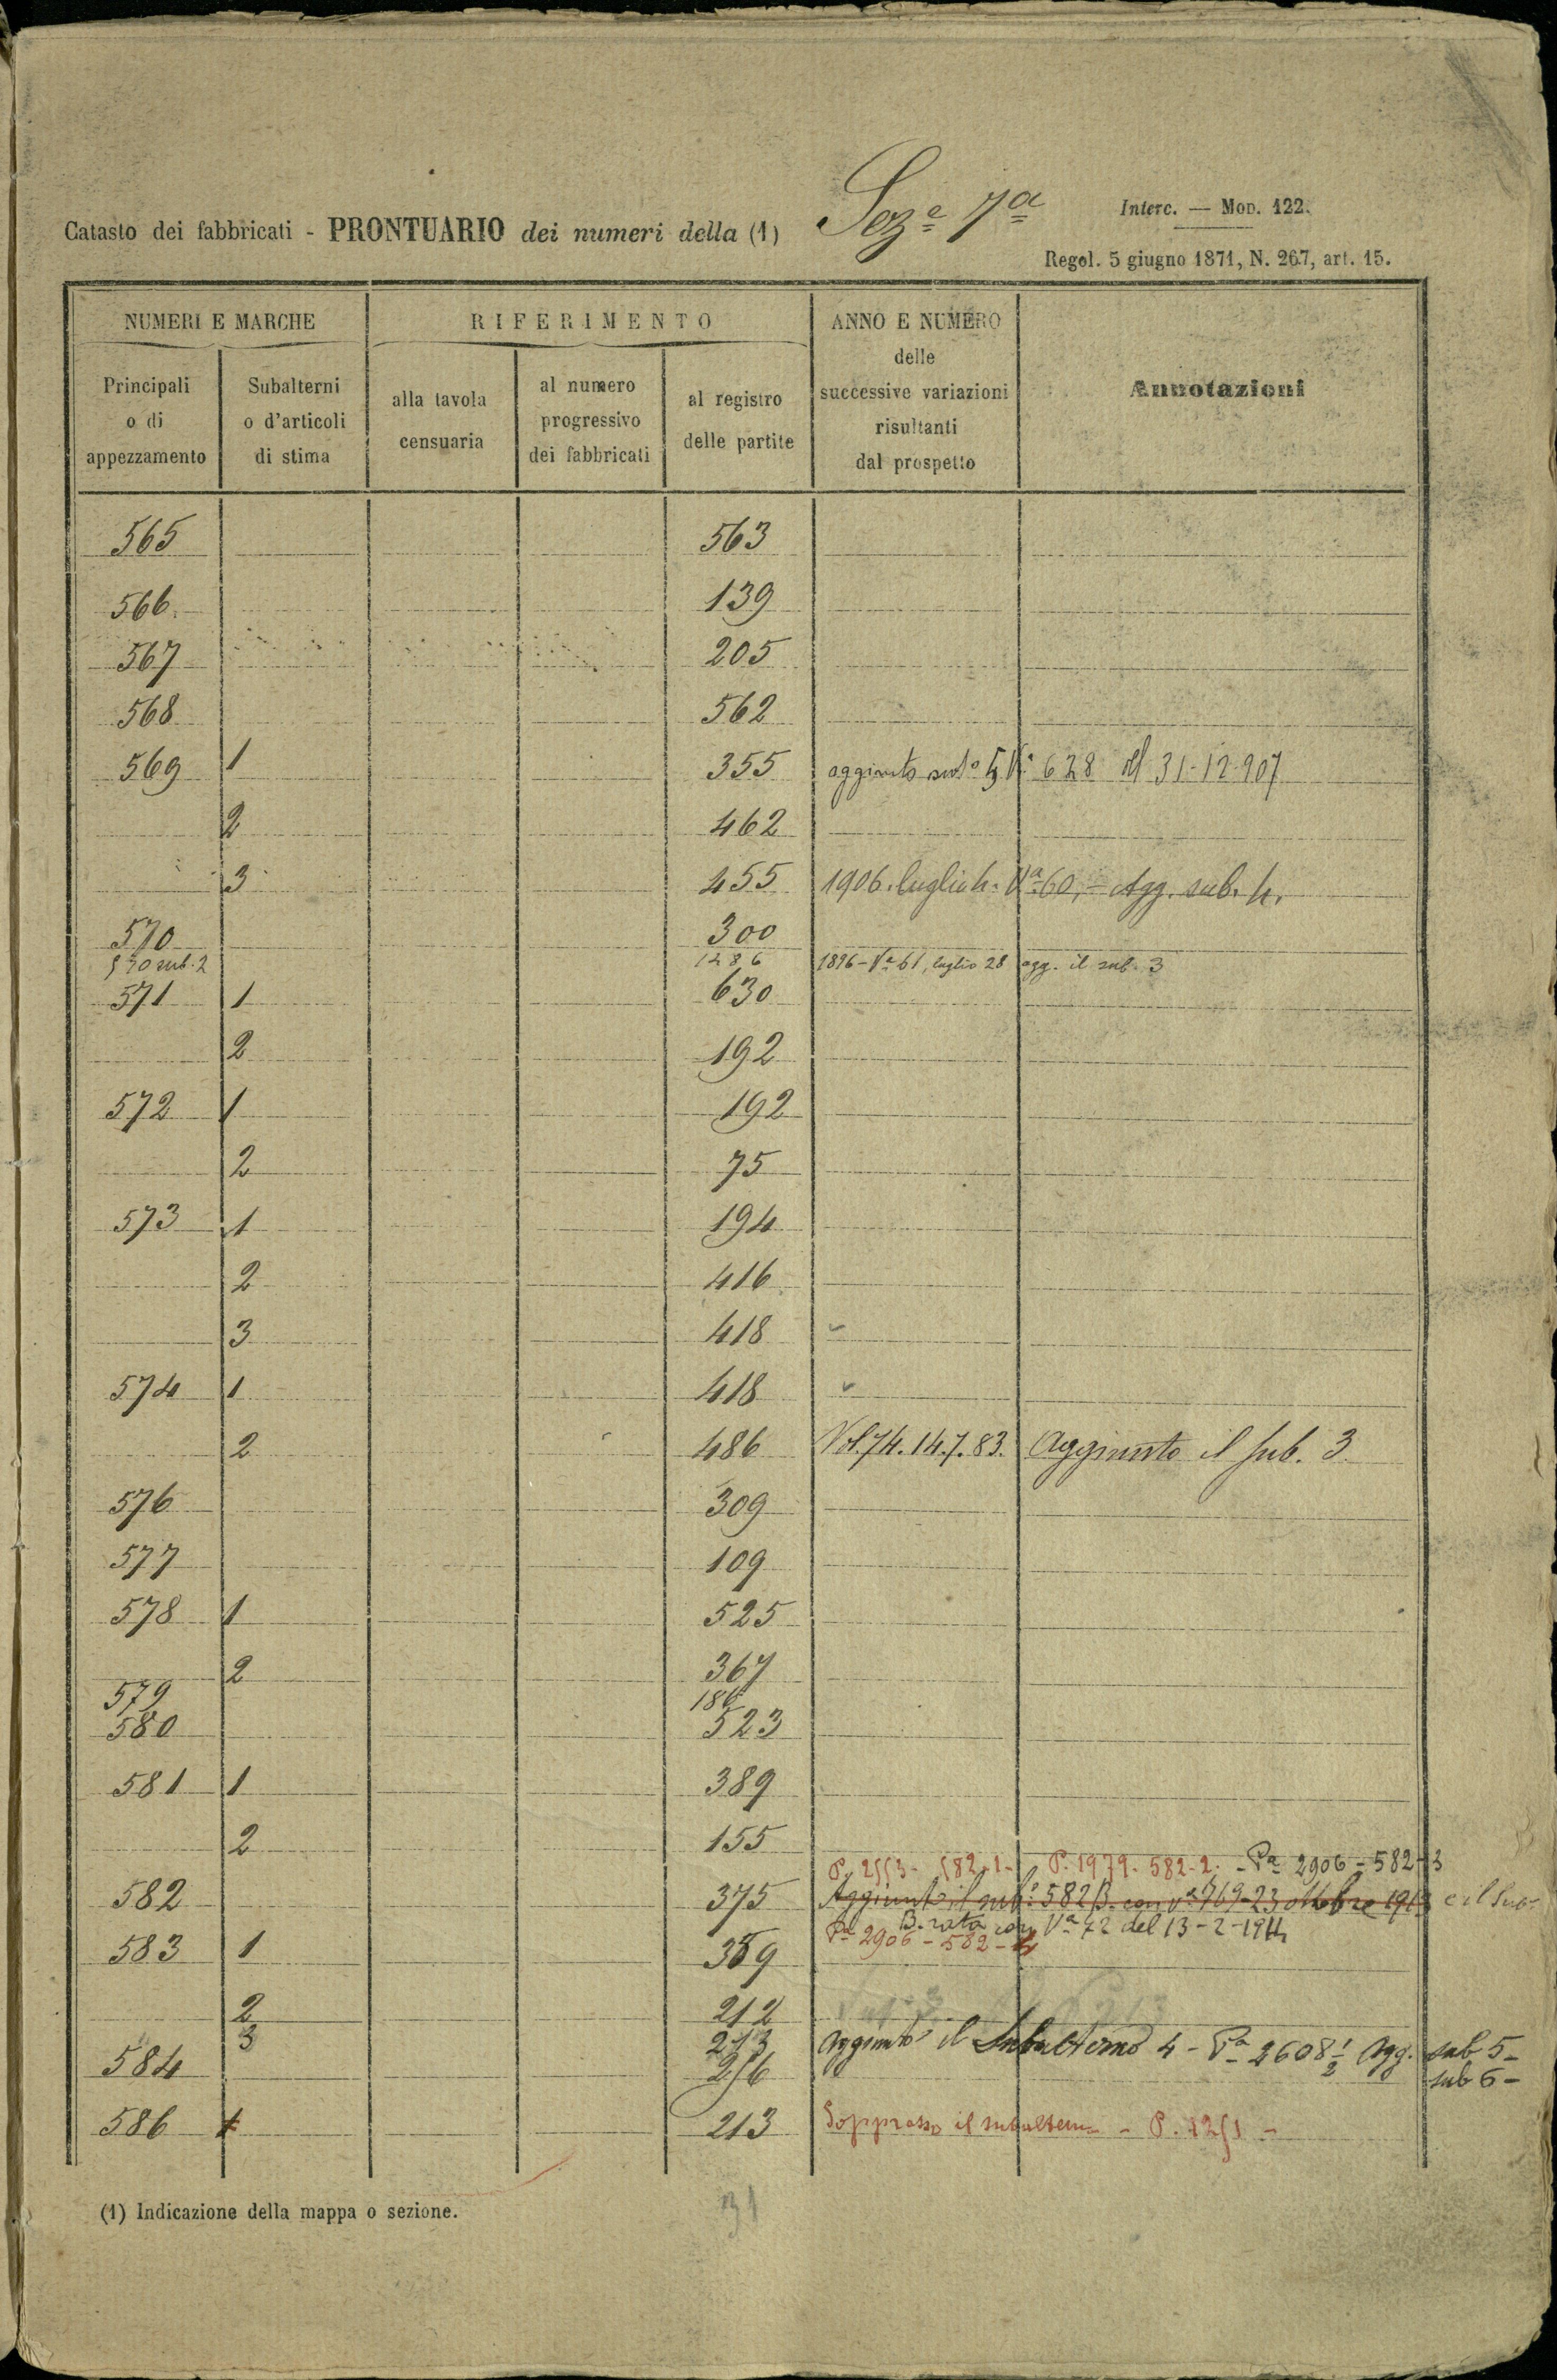 Catasto dei fabbricati - PRONTUARIO dei numeri della (1) Sez.e 7a
Interc. — Mod. 122.
Regol. 5 giugno 1871, N. 267, art. 15.
NUMERI E MARCHE
Principali o di appezzamento
Subalterni o d'articoli di stima
RIFERIMENTO
alla tavola censuaria
al numero progressivo dei fabbricati
al registro delle partite
ANNO E NUMERO delle successive variazioni risultanti dal prospetto
Annotazioni
565 563
566 139
567 205
568 562
569 1 355 aggiunto sub.o 5 V.a 628 del 31-12-907
2 462
3 455 1906. luglio 4. Va 60, - Agg. sub. 4.
570 300
570 sub. 2 1286 1896 - Va 61, luglio 28 agg. il sub. 3
571 1 630
2 192
572 1 192
2 75
573 1 194
2 416
3 418
574 1 418
2 486 Vol. 74. 14.7.83. Aggiunto il sub. 3
576 309
577 109
578 1 525
2 367
579 186
580 523
581 1 389
2 155
P. 2553 - 582-1- P. 1979. 582-2. - Pa 2906 - 582-3
582 375 Aggiunto il sub.o 582 B. con va 769-23 ottobre 1913 e il Sub.
B. rata con Va 72 del 13-2-1914
Pa 2906 - 582 - 4
583 1 389
2 212
3 213 aggiunto il Subalterno 4 - Pa 2608 1/2 Agg. sub 5 -
584 256 sub 6 -
586 1 213 Soppresso il subalterno - P. 1251 -
(1) Indicazione della mappa o sezione.
31